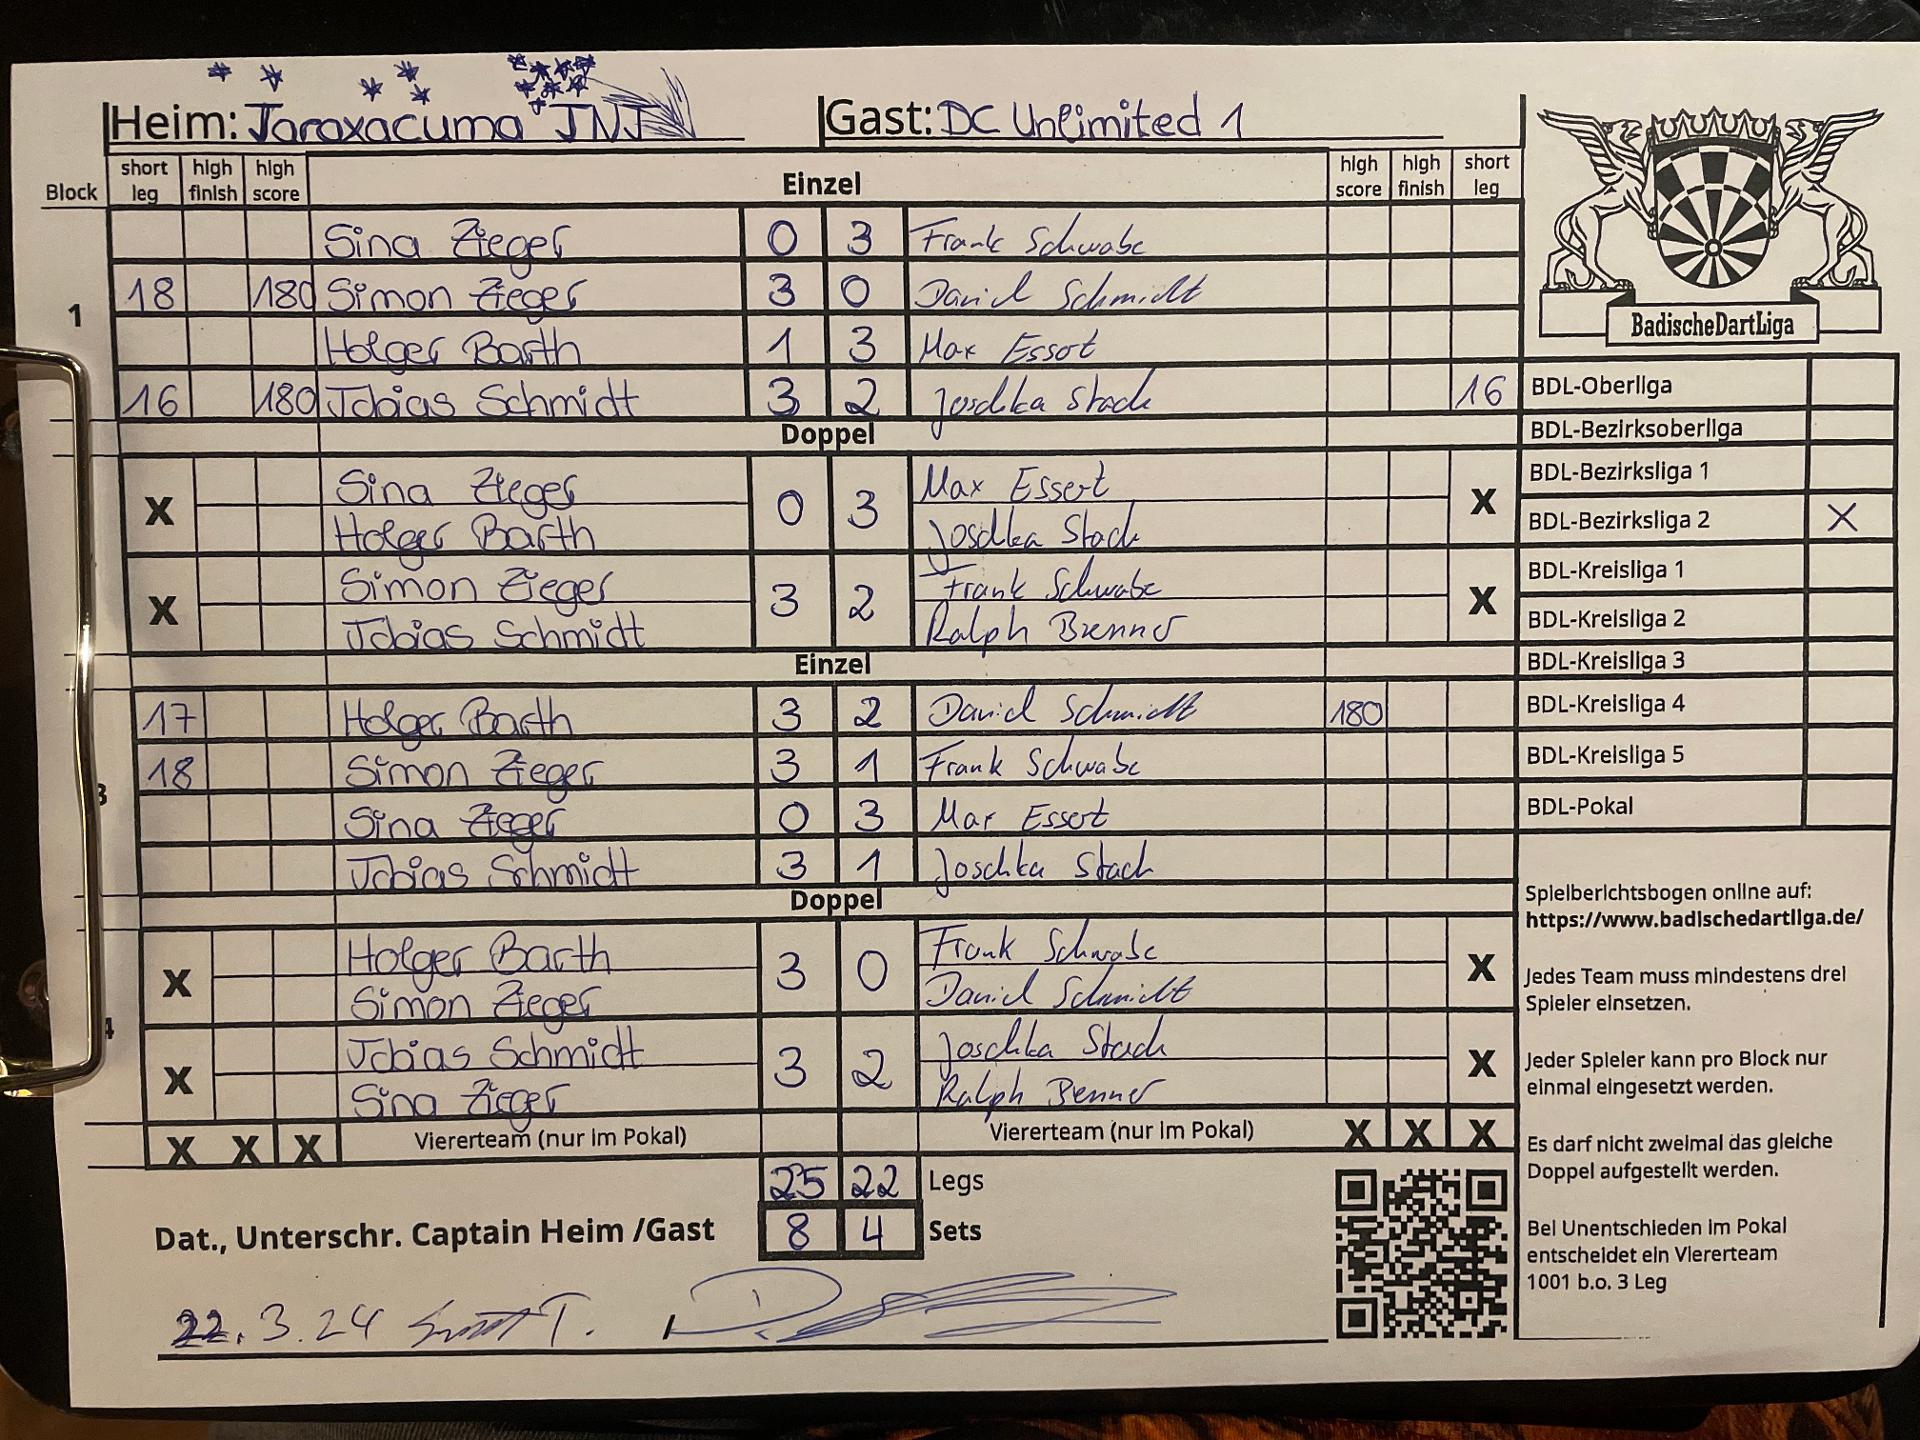 Heim: Taraxacuma JNJ Gast: DC Unlimited 1
Block short leg high finish high score Einzel high score high finish short leg
Sina Zieger 0 3 Frank Schwabe
1 18 180 Simon Zieger 3 0 David Schmidt
Holger Barth 1 3 Max Essert
16 180 Tobias Schmidt 3 2 Joschka Stach 16
Doppel
X Sina Zieger 0 3 Max Essert X
Holger Barth Joschka Stach
X Simon Zieger 3 2 Frank Schwabe X
Tobias Schmidt Ralph Brenner
Einzel
17 Holger Barth 3 2 David Schmidt 180
3 18 Simon Zieger 3 1 Frank Schwabe
Sina Zieger 0 3 Max Essert
Tobias Schmidt 3 1 Joschka Stach
Doppel
X Holger Barth 3 0 Frank Schwabe X
4 Simon Zieger David Schmidt
X Tobias Schmidt 3 2 Joschka Stach X
Sina Zieger Ralph Benner
X X X Viererteam (nur im Pokal) Viererteam (nur im Pokal) X X X
25 22 Legs
Dat., Unterschr. Captain Heim /Gast 8 4 Sets
22.3.24
BadischeDartLiga
BDL-Oberliga
BDL-Bezirksoberliga
BDL-Bezirksliga 1
BDL-Bezirksliga 2 X
BDL-Kreisliga 1
BDL-Kreisliga 2
BDL-Kreisliga 3
BDL-Kreisliga 4
BDL-Kreisliga 5
BDL-Pokal
Spielberichtsbogen online auf:
https://www.badischedartliga.de/
Jedes Team muss mindestens drei
Spieler einsetzen.
Jeder Spieler kann pro Block nur
einmal eingesetzt werden.
Es darf nicht zweimal das gleiche
Doppel aufgestellt werden.
Bei Unentschieden im Pokal
entscheidet ein Viererteam
1001 b.o. 3 Leg